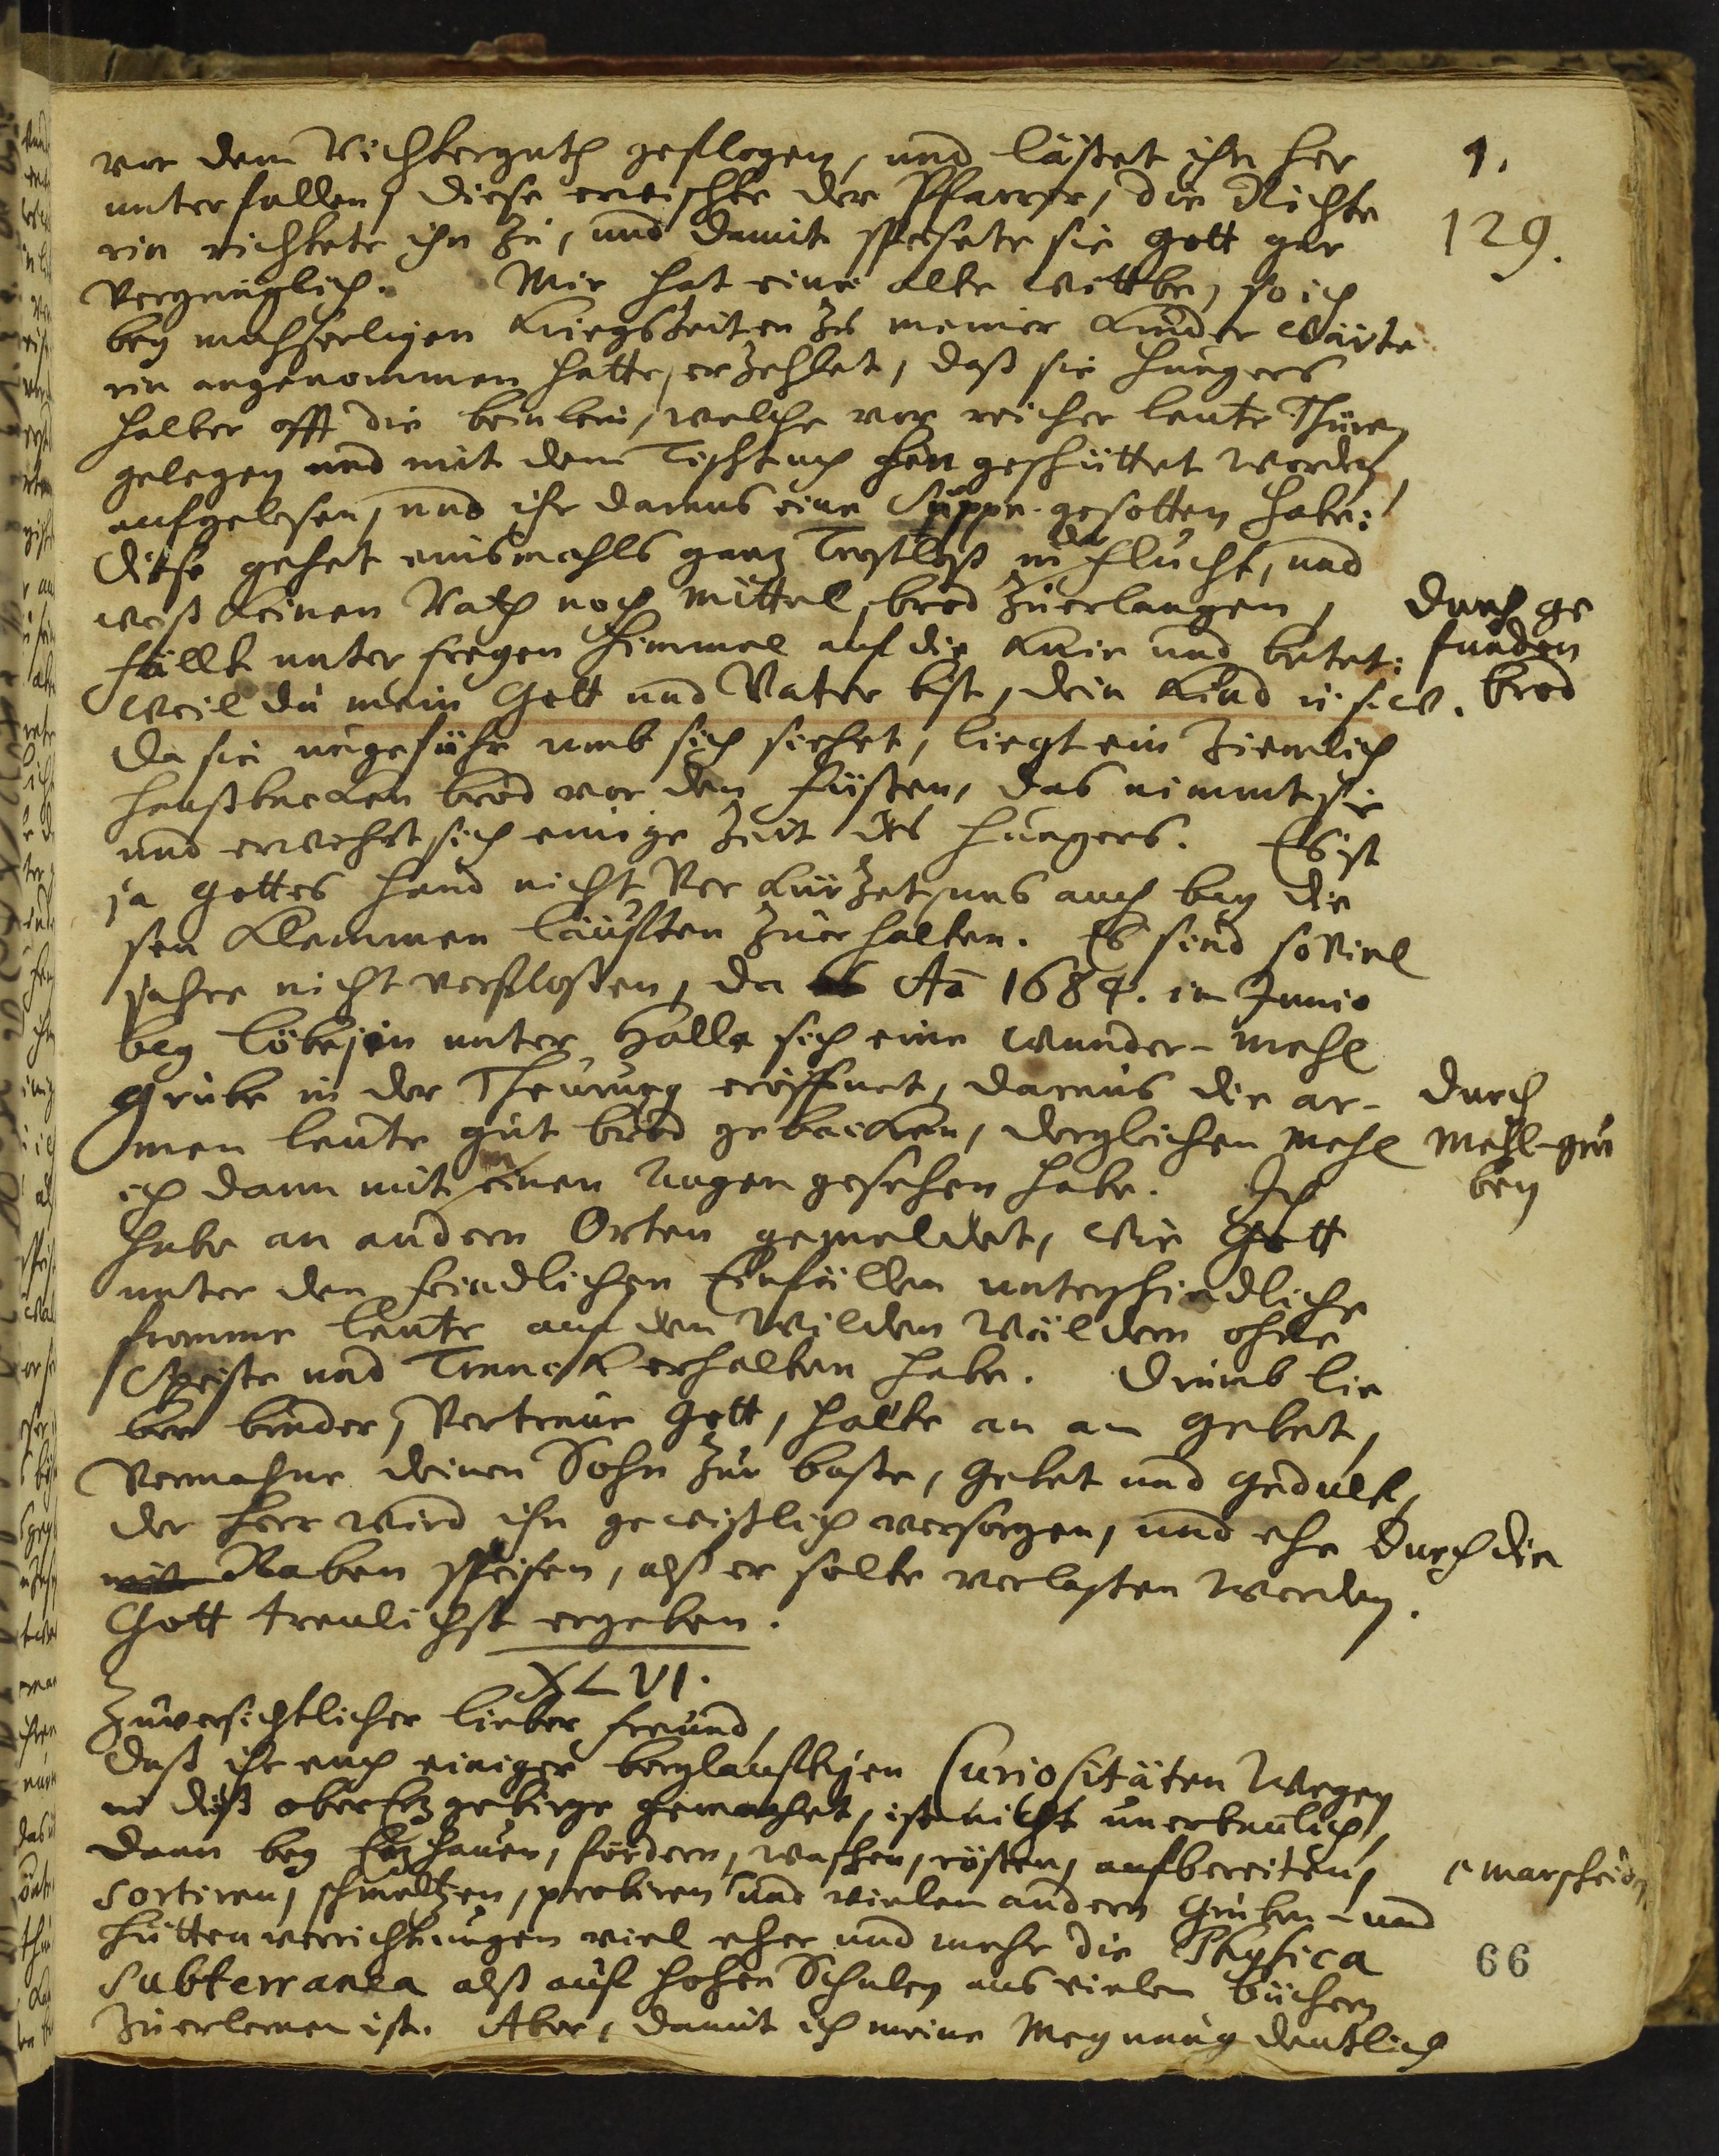 vor dem Richterguth geflogen, und läßet ihn her
1.
unterfallen, diese erwischte der Pfarrer, die Richte
rin richtete ihn zu, und damit speisete sie Gott gar
129.
vergnüglich. Mir hat eine alte Wittbe, so ich
bey mühseeligen Kriegszeiten zu meiner Kinder Wärte
rin angenommen hatte, erzehlet, daß sie Hungers
halber offt die beinlein, welche vor reicher leute Thüren
gelegen und mit dem Tischtuch hen geschüttet worden
aufgelesen, und ihr daraus eine Suppe gesotten habe:
Diese gehet einsmahls gantz Trostloß in der flucht, und
weiß keinen Rath noch mittel, brod zuerlangen,
durch ge
fällt unter freyen Himmel auf die Knie und betet:
funden
Weil du mein Gott und Vater bist, dein Kind u.s.w.
brod
Da sie ungefähr umb sich siehet, liegt ein ziemlich
haußbacken brod vor den füßen, das nimmt sie
und erwehrt sich einige Zeit des Hungers. Es ist
ja Gottes Hand nicht verkürzet, uns auch bey die
sen klemmen läufften zuerhalten. Es sind so viel
Jahre nicht verfloßen, da Aō 1684. im Junio
bey Löbejün unter Halle sich eine Wunder-Mehl
grube in der Theurung eröffnet, daraus die ar-
durch
men leute gut brod gebacken, dergleichen Mehl
Mehl-gru
ich dann mit meinen Augen gesehen habe. Ich
ben
habe an andern Orten gemeldet, wie Gott
unter den feindlichen Einfällen unterschiedliche
fromme leute auf den Wilden Wäldern ohne
Speiße und Tranck erhalten habe. Drumb lie
ber bruder, Vertraue Gott, halte an am Gebet,
Vermahne deinen Sohn zur buße, Gebet und Gedult,
der Herr wird ihn gewißlich versorgen, und ehe durch die
mit Raben speisen, alß er solte verlaßen werden.
Gott treulichst ergeben.
XLVI.
Zuversichtlicher lieber freund,
Daß ihr euch einiger bergläufftigen Curiositäten wegen
in diß oberErtzgebirge hermachet, ist nicht unerbaulich,
dann bey Ertzhauen, fördern, waschen, rösten, aufbereiten,
marscheiden
sortiren, schmeltzen, probiren und vielen andern Gruben- und
Hüttenverrichtungen viel eher und mehr die Physica
66
subterranea alß auf hohen Schulen aus vielen büchern
zuerlernen ist. Aber, damit ich meine Meynung deutlich